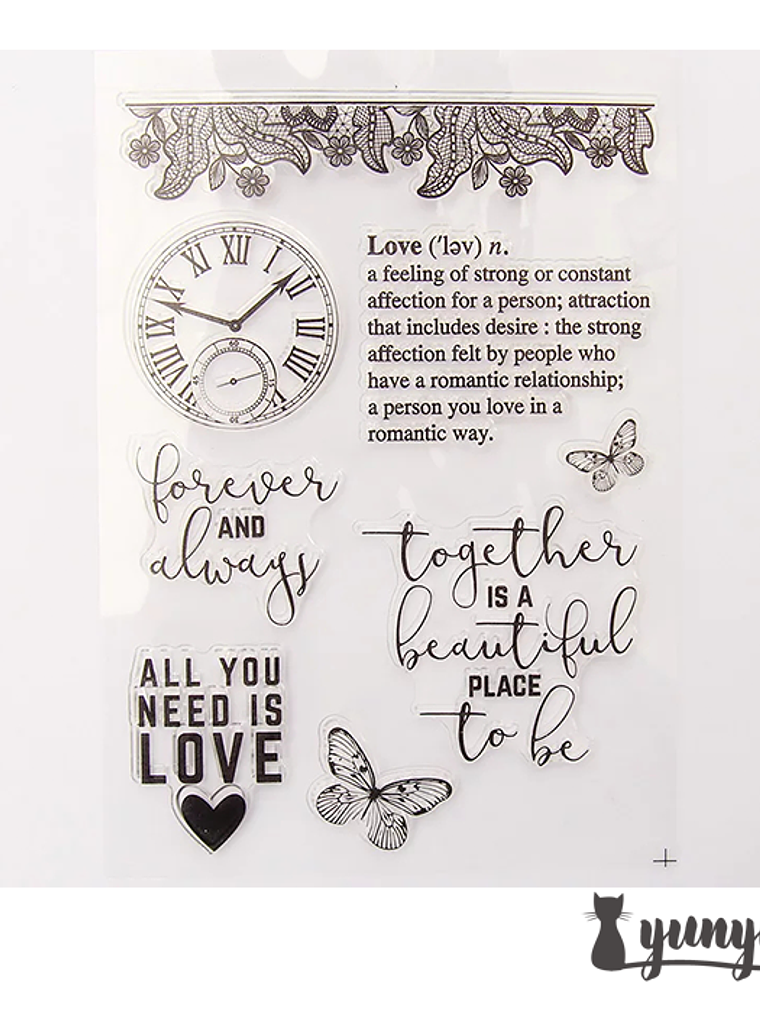 XII
I
II
III
IX
XI
Love ('ləv) n.
a feeling of strong or constant
affection for a person; attraction
that includes desire : the strong
affection felt by people who
have a romantic relationship;
a person you love in a
romantic way.
forever
AND
always
together
IS A
beautiful
PLACE
to be
ALL YOU
NEED IS
LOVE